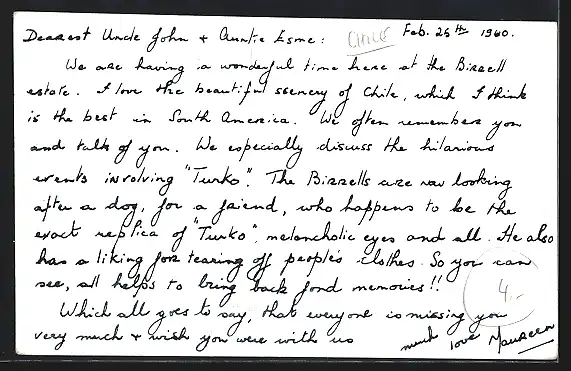 Dearest Uncle John + Auntie Esme: CHILE Feb. 25th 1960.
We are having a wonderful time here at the Birrell
estate. I love the beautiful ssenery of Chile, which I think
is the best in South America. We often remember you
and talk of you. We especially discuss the hilarious
events involving "Turko". The Birrells are now looking
after a dog, for a friend, who happens to be the
exact replica of "Turko", melancholic eyes and all. He also
has a liking for tearing off people's clothes. So you can
see, all helps to bring back fond memories!!
4.-
Which all goes to say, that everyone is missing you
very much + wish you were with us much love Maureen